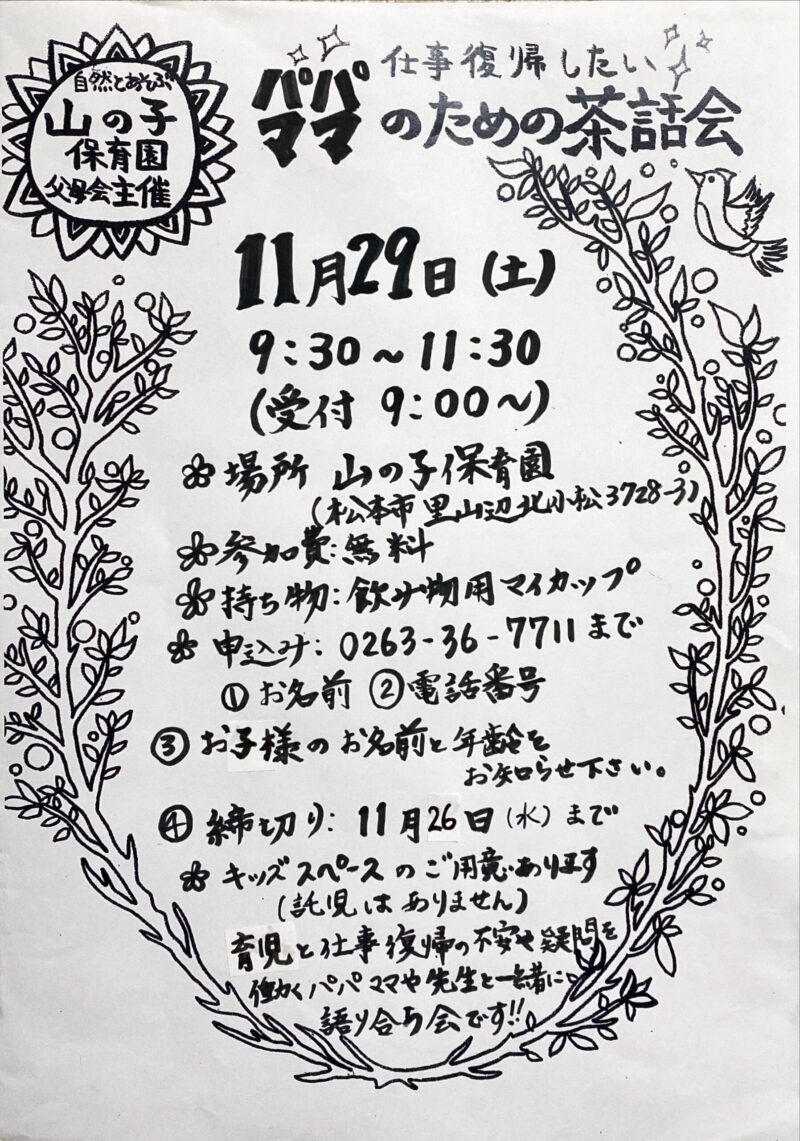 自然とあそぶ
山の子
保育園
父母会主催
仕事復帰したい
パパ
ママ
のための茶話会
11月29日(土)
9:30~11:30
(受付 9:00~)
場所 山の子保育園
(松本市里山辺北小松3728-3)
参加費:無料
持ち物:飲み物用マイカップ
申込み:0263-36-7711まで
①お名前 ②電話番号
③お子様のお名前と年齢を
お知らせ下さい。
④締切り:11月26日(水)まで
キッズスペースのご用意あります
(託児はありません)
育児と仕事復帰の不安や疑問を
働くパパママや先生と一緒に
語り合う会です!!